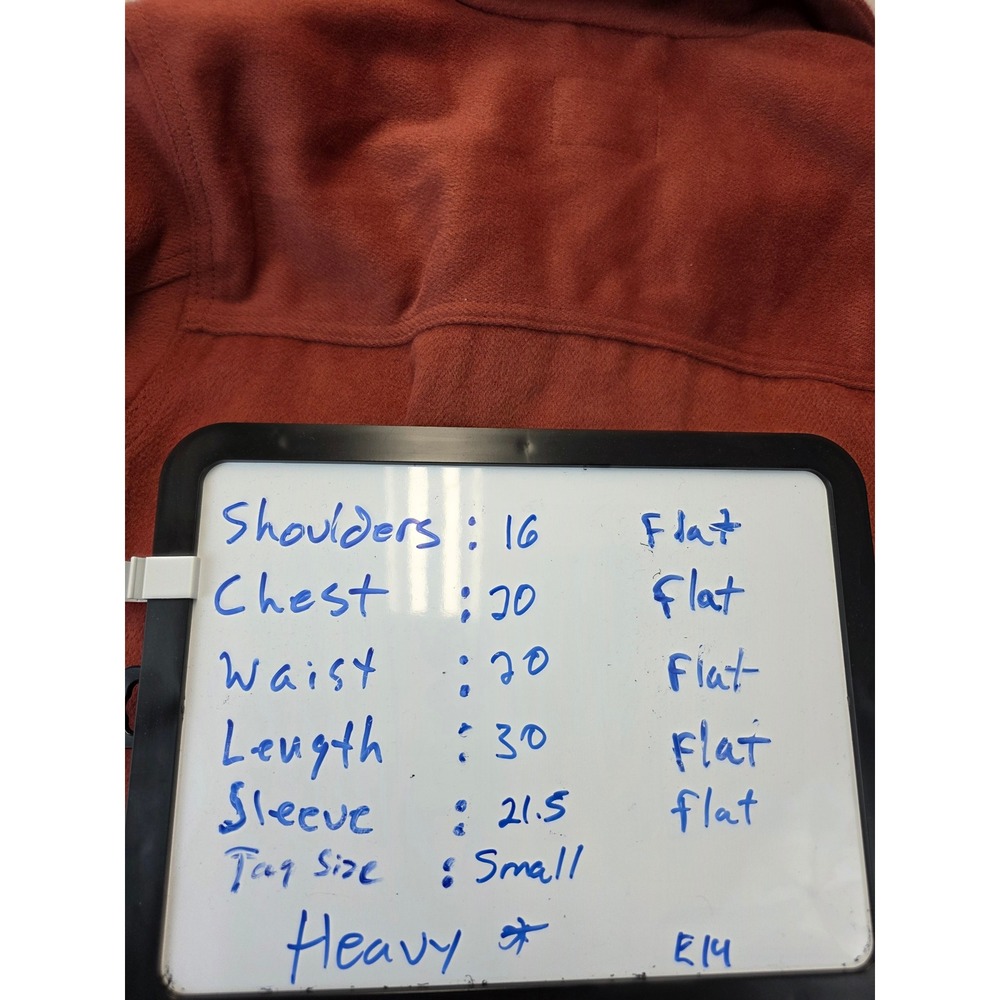 Shoulders : 16 Flat
Chest : 20 Flat
Waist : 20 Flat
Length : 30 Flat
Sleeve : 21.5 flat
Tag Size : Small
Heavy * E14